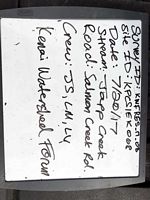 Survey ID:
Site ID:
Date: 7/20/17
Stream: Jeap Creek
Road: Salmon Creek Rd.
Crew: JS, LM, LY
Kenai Watershed Forum